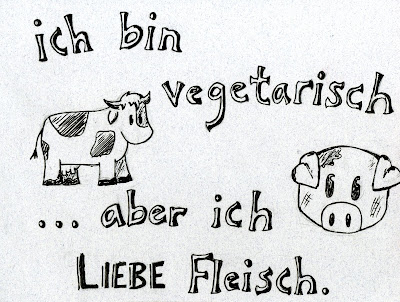 ich bin
vegetarisch
... aber ich
LIEBE Fleisch.